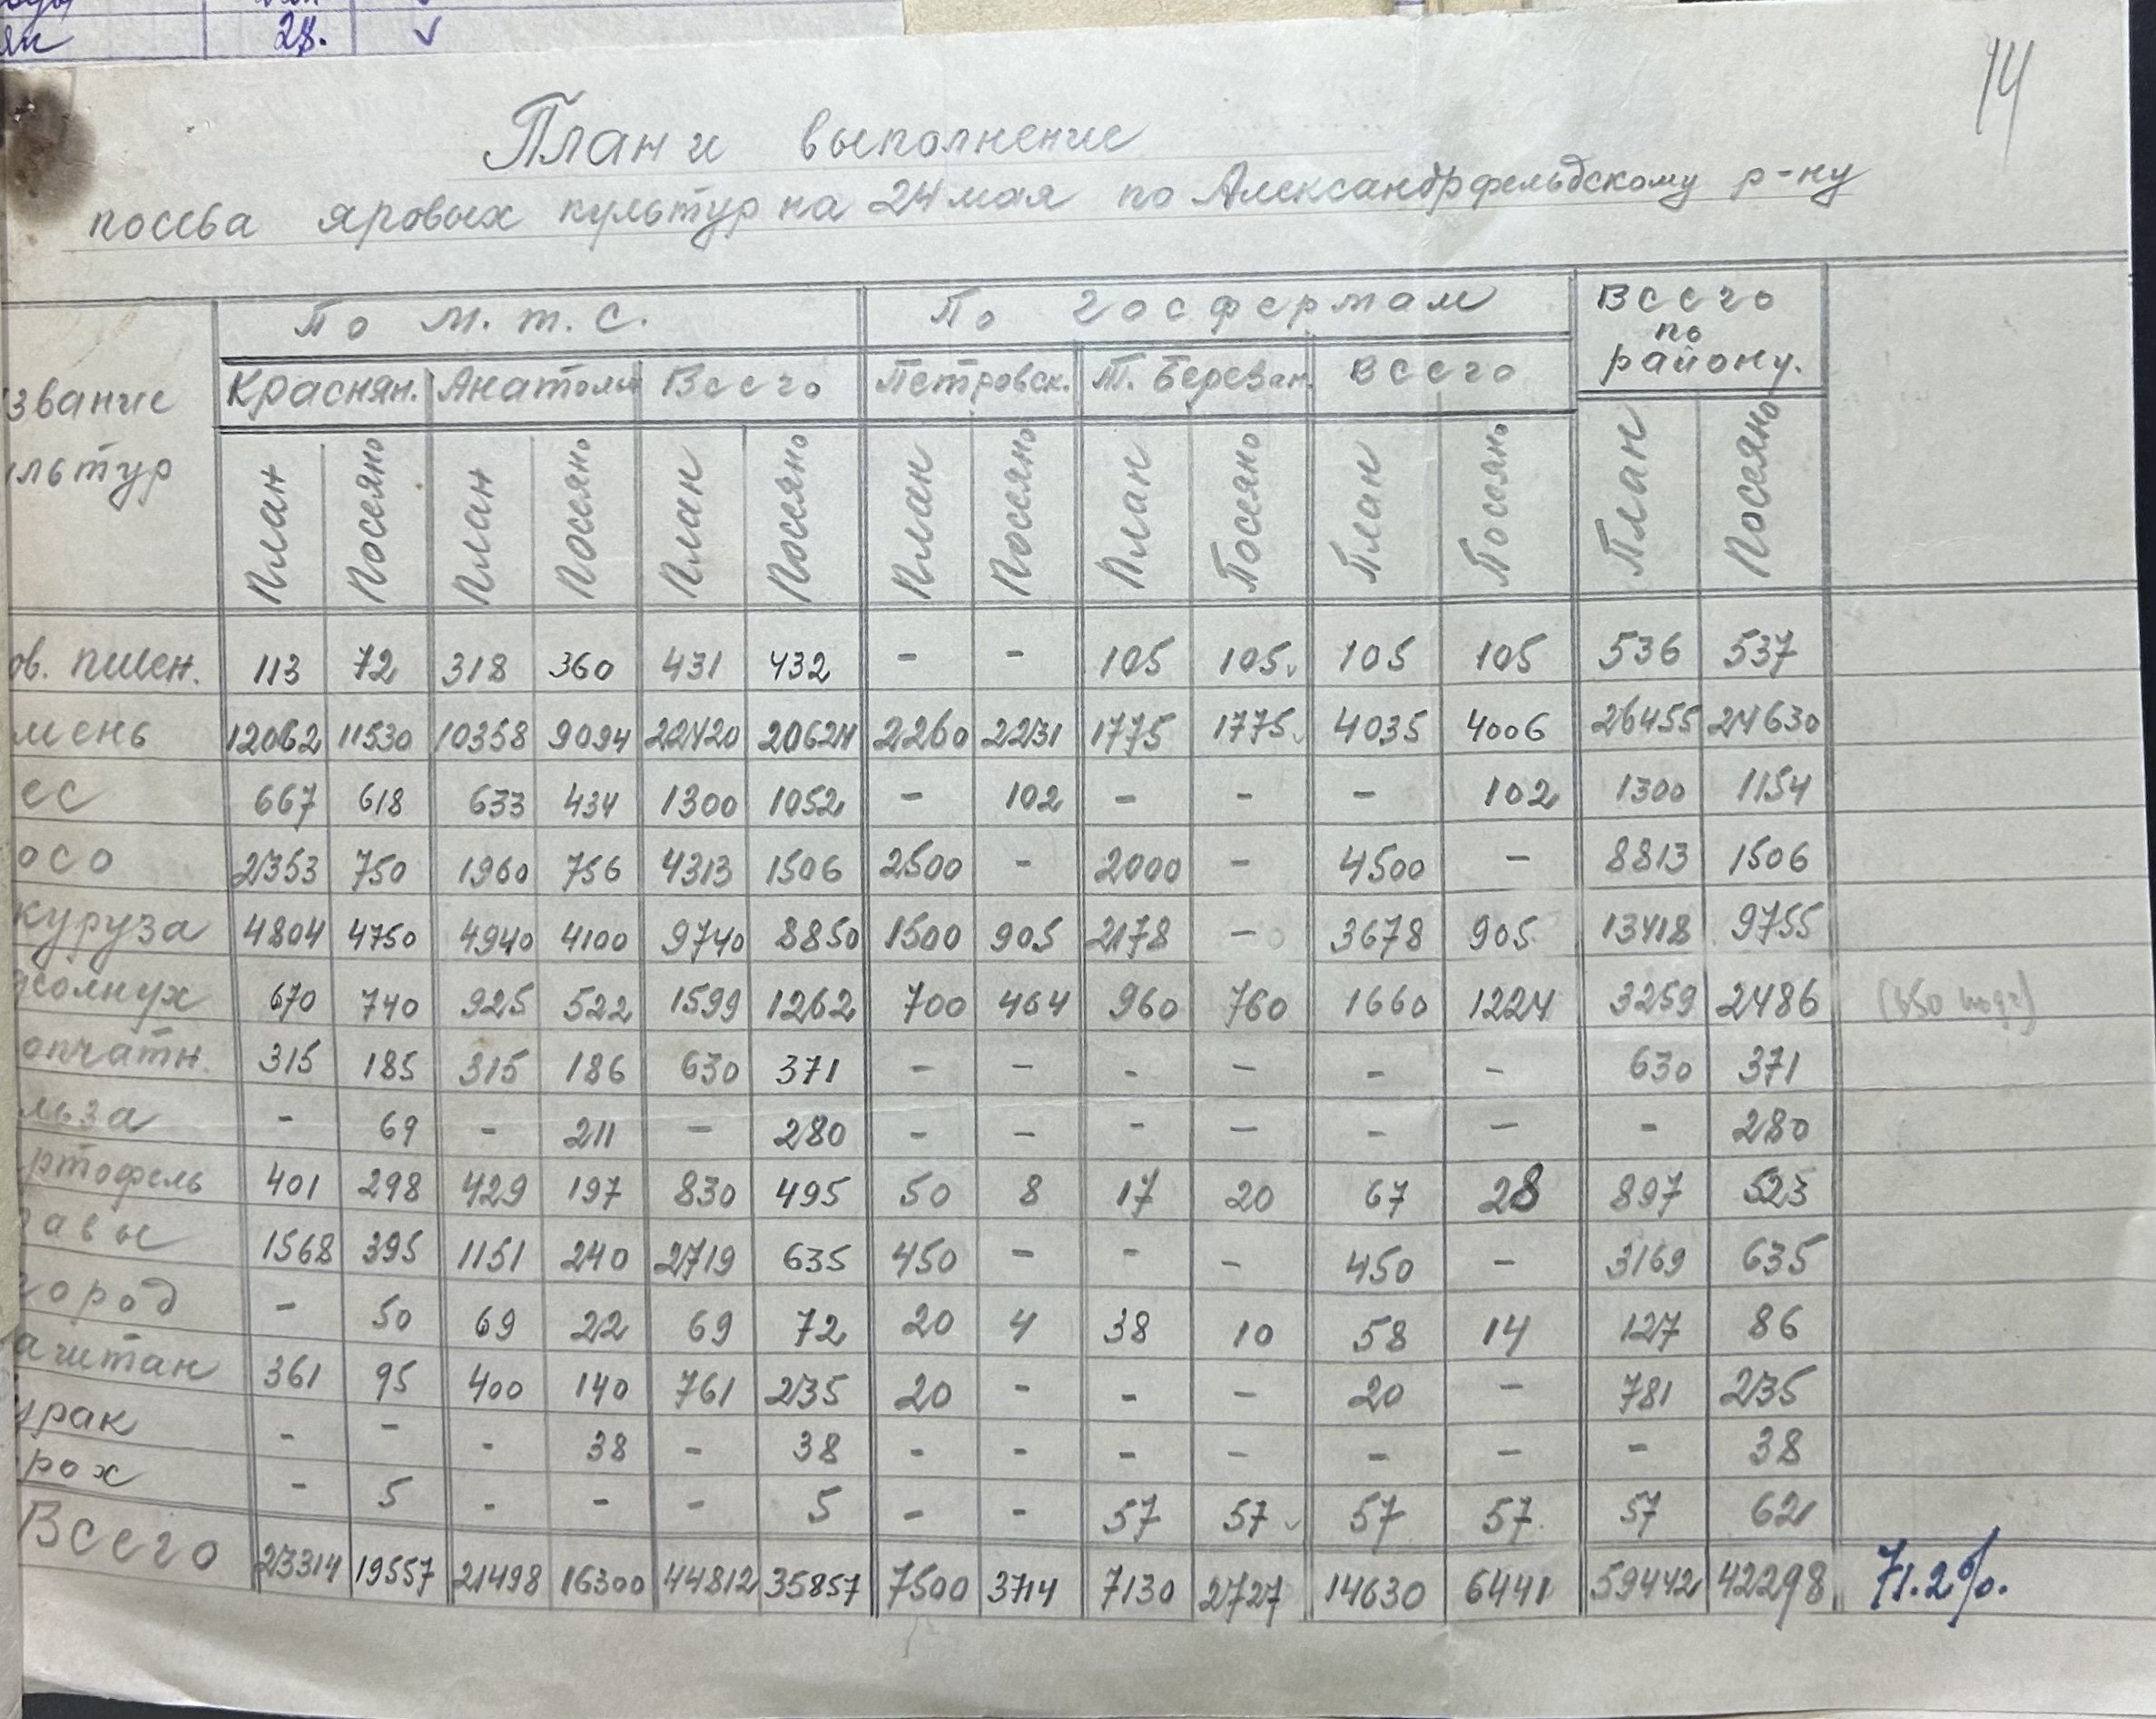 28. ✓
14
План и выполнение
посева яровых культур на 24 мая по Александрфельдскому р-ну
звание ультур | По м.т.с. | По госфермам | Всего по району.
Краснян. | Анатольев | Всего | Петровск. | Т. Березан. | Всего
План | Посеяно | План | Посеяно | План | Посеяно | План | Посеяно | План | Посеяно | План | Посеяно | План | Посеяно
ов. пшен. | 113 | 72 | 318 | 360 | 431 | 432 | - | - | 105 | 105 | 105 | 105 | 536 | 537
мень | 12062 | 11530 | 10358 | 9094 | 22420 | 20624 | 2260 | 2231 | 1775 | 1775 | 4035 | 4006 | 26455 | 24630
ес | 667 | 618 | 633 | 434 | 1300 | 1052 | - | 102 | - | - | - | 102 | 1300 | 1154
осо | 2353 | 750 | 1960 | 756 | 4313 | 1506 | 2500 | - | 2000 | - | 4500 | - | 8813 | 1506
куруза | 4804 | 4750 | 4940 | 4100 | 9740 | 8850 | 1500 | 905 | 2178 | - | 3678 | 905 | 13418 | 9755
дсолнух | 670 | 740 | 925 | 522 | 1599 | 1262 | 700 | 464 | 960 | 760 | 1660 | 1224 | 3259 | 2486
опчатн. | 315 | 185 | 315 | 186 | 630 | 371 | - | - | - | - | - | - | 630 | 371
льза | - | 69 | - | 211 | - | 280 | - | - | - | - | - | - | - | 280
ртофель | 401 | 298 | 429 | 197 | 830 | 495 | 50 | 8 | 17 | 20 | 67 | 28 | 897 | 523
равы | 1568 | 395 | 1151 | 240 | 2719 | 635 | 450 | - | - | - | 450 | - | 3169 | 635
город | - | 50 | 69 | 22 | 69 | 72 | 20 | 4 | 38 | 10 | 58 | 14 | 127 | 86
аштан | 361 | 95 | 400 | 140 | 761 | 235 | 20 | - | - | - | 20 | - | 781 | 235
урак | - | - | - | 38 | - | 38 | - | - | - | - | - | - | - | 38
рох | - | 5 | - | - | - | 5 | - | - | 57 | 57 | 57 | 57 | 57 | 62
Всего | 23314 | 19557 | 21498 | 16300 | 44812 | 35857 | 7500 | 3714 | 7130 | 2727 | 14630 | 6441 | 59442 | 42298 | 71.2%.